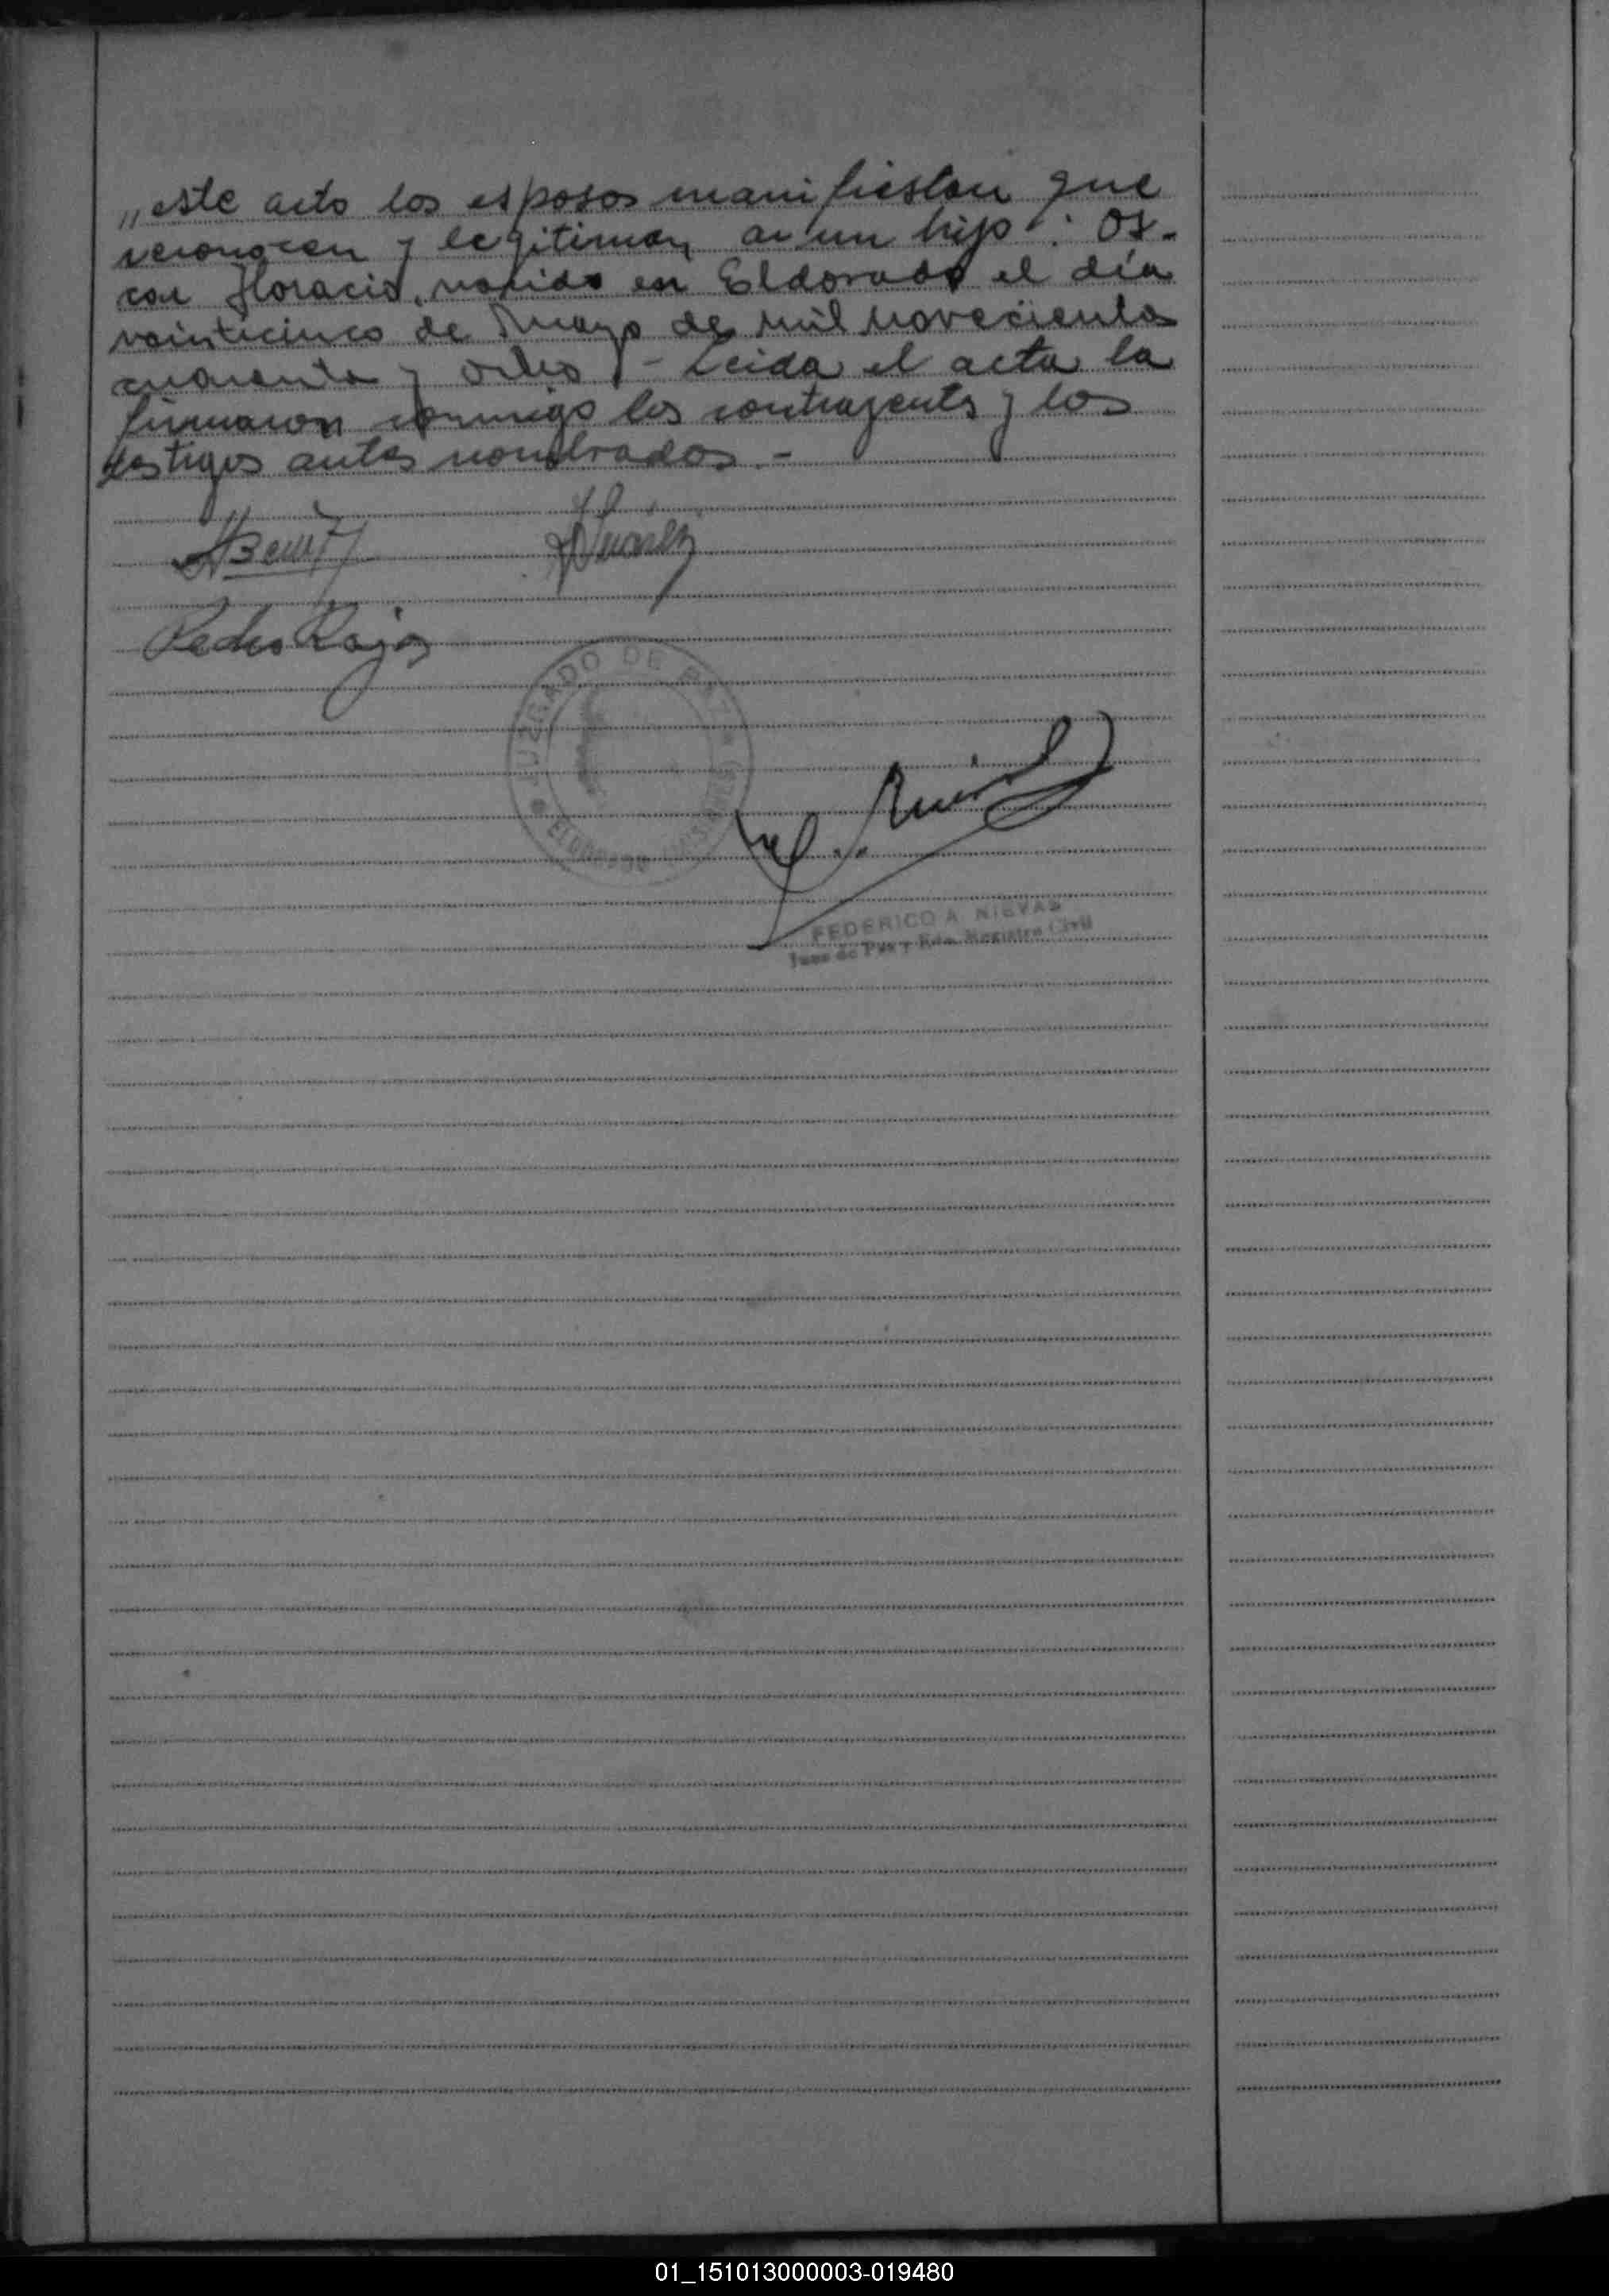 „ este acto los esposos manifiestan que
reconocen y legitiman a un hijo: Os-
car Horacio, nacido en Eldorado el día
veinticinco de Mayo de mil novecientos
cuarenta y ocho.- Leida el acta la
firmaron conmigo los contrayents y los
testigos antes nombrados.-
Pedro Rojas
JUZGADO DE PAZ
ELDORADO (MISIONES)
FEDERICO A. NIEVAS
Juez de Paz y Edo. Registro Civil
01_151013000003-019480